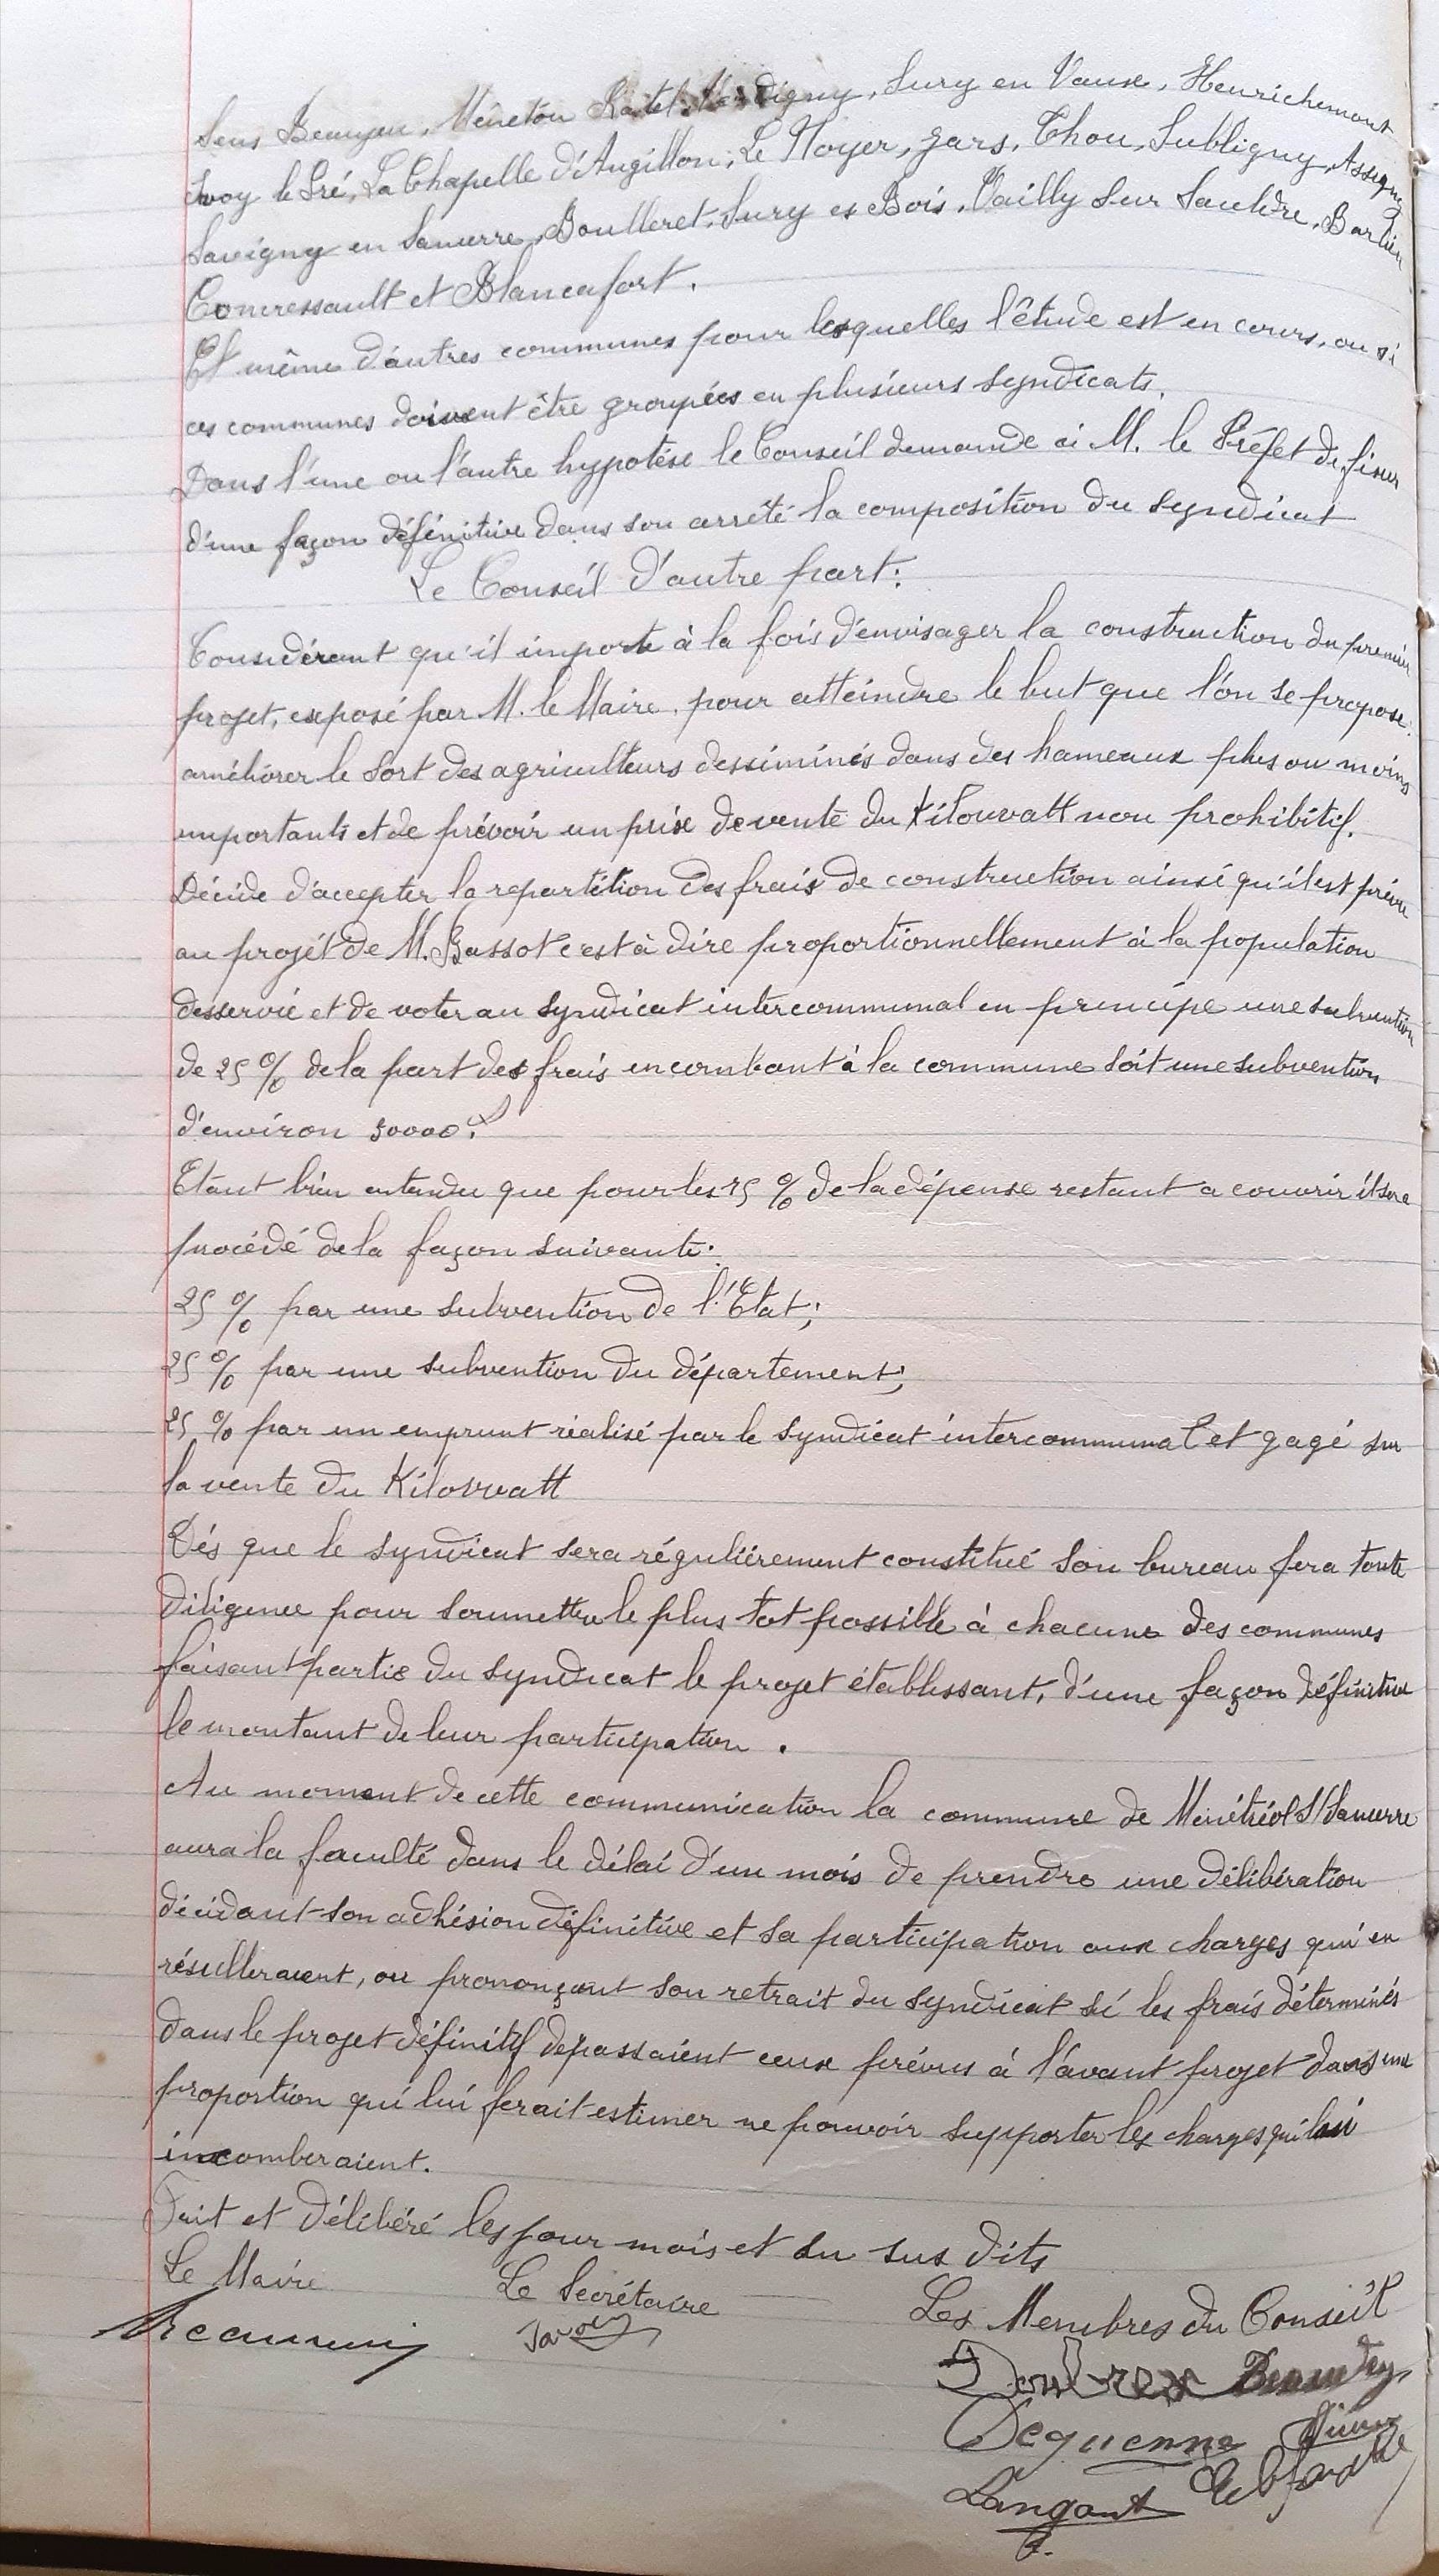 Sens Beaujeu, Menetou Ratel, Verdigny, Sury en Vaux, Henrichemont
Ivoy le Pré, La Chapelle d'Angillon, Le Noyer, Jars, Thou, Subligny, Assigny
Savigny en Sancerre, Boulleret, Sury es Bois, Vailly sur Sauldre, Barlieu
Concressault et Blancafort.
Et même d'autres communes pour lesquelles l'étude est en cours, ou si
ces communes doivent être groupées en plusieurs syndicats.
Dans l'une ou l'autre hypotése le Conseil demande à M. le Préfet de fixer
d'une façon définitive dans son arrêté la composition du syndicat
Le Conseil d'autre part:
Considérant qu'il importe à la fois d'envisager la construction du premier
projet, exposé par M. le Maire, pour atteindre le but que l'on se propose:
améliorer le sort des agriculteurs dessiminés dans des hameaux plus ou moins
importants et de prévoir un prix de vente du Kilouvatt non prohibitif.
Décide d'accepter la repartition des frais de construction ainsi qu'il est prévu
au projét de M. Bassot c'est à dire proportionnellement à la population
desservie et de voter au syndicat intercommunal en principe une subvention
de 25 % de la part des frais incombant à la commune soit une subvention
d'environ 50000.f
Etant bien entendu que pour les 75 % de la dépense restant a couvrir il sera
procédé de la façon suivante:
25 % par une subvention de l'Etat;
25 % par une subvention du département;
25 % par un emprunt réalisé par le syndicat intercommunal et gagé sur
la vente du Kilovvatt
Dés que le syndicat sera réguliérement constitué son bureau fera toute
diligence pour soumettre le plus tot possible à chacune des communes
faisant partie du syndicat le projet établissant, d'une façon définitive
le montant de leur participation.
Au moment de cette communication la commune de Ménétréol S/Sancerre
aura la faculté dans le délai d'un mois de prendre une délibération
décidant son adhésion définitive et sa participation aux charges qui en
résulteraient, ou prononçant son retrait du syndicat si les frais déterminés
dans le projet définitif depassaient ceux prévus à l'avant projet dans une
proportion qui lui ferait estimer ne pouvoir supporter les charges qui lui
incomberaient.
Fait et délibéré les jour mois et an sus dits
Le Maire Le Secrétaire Les Membres du Conseil
Dequenne
Langant